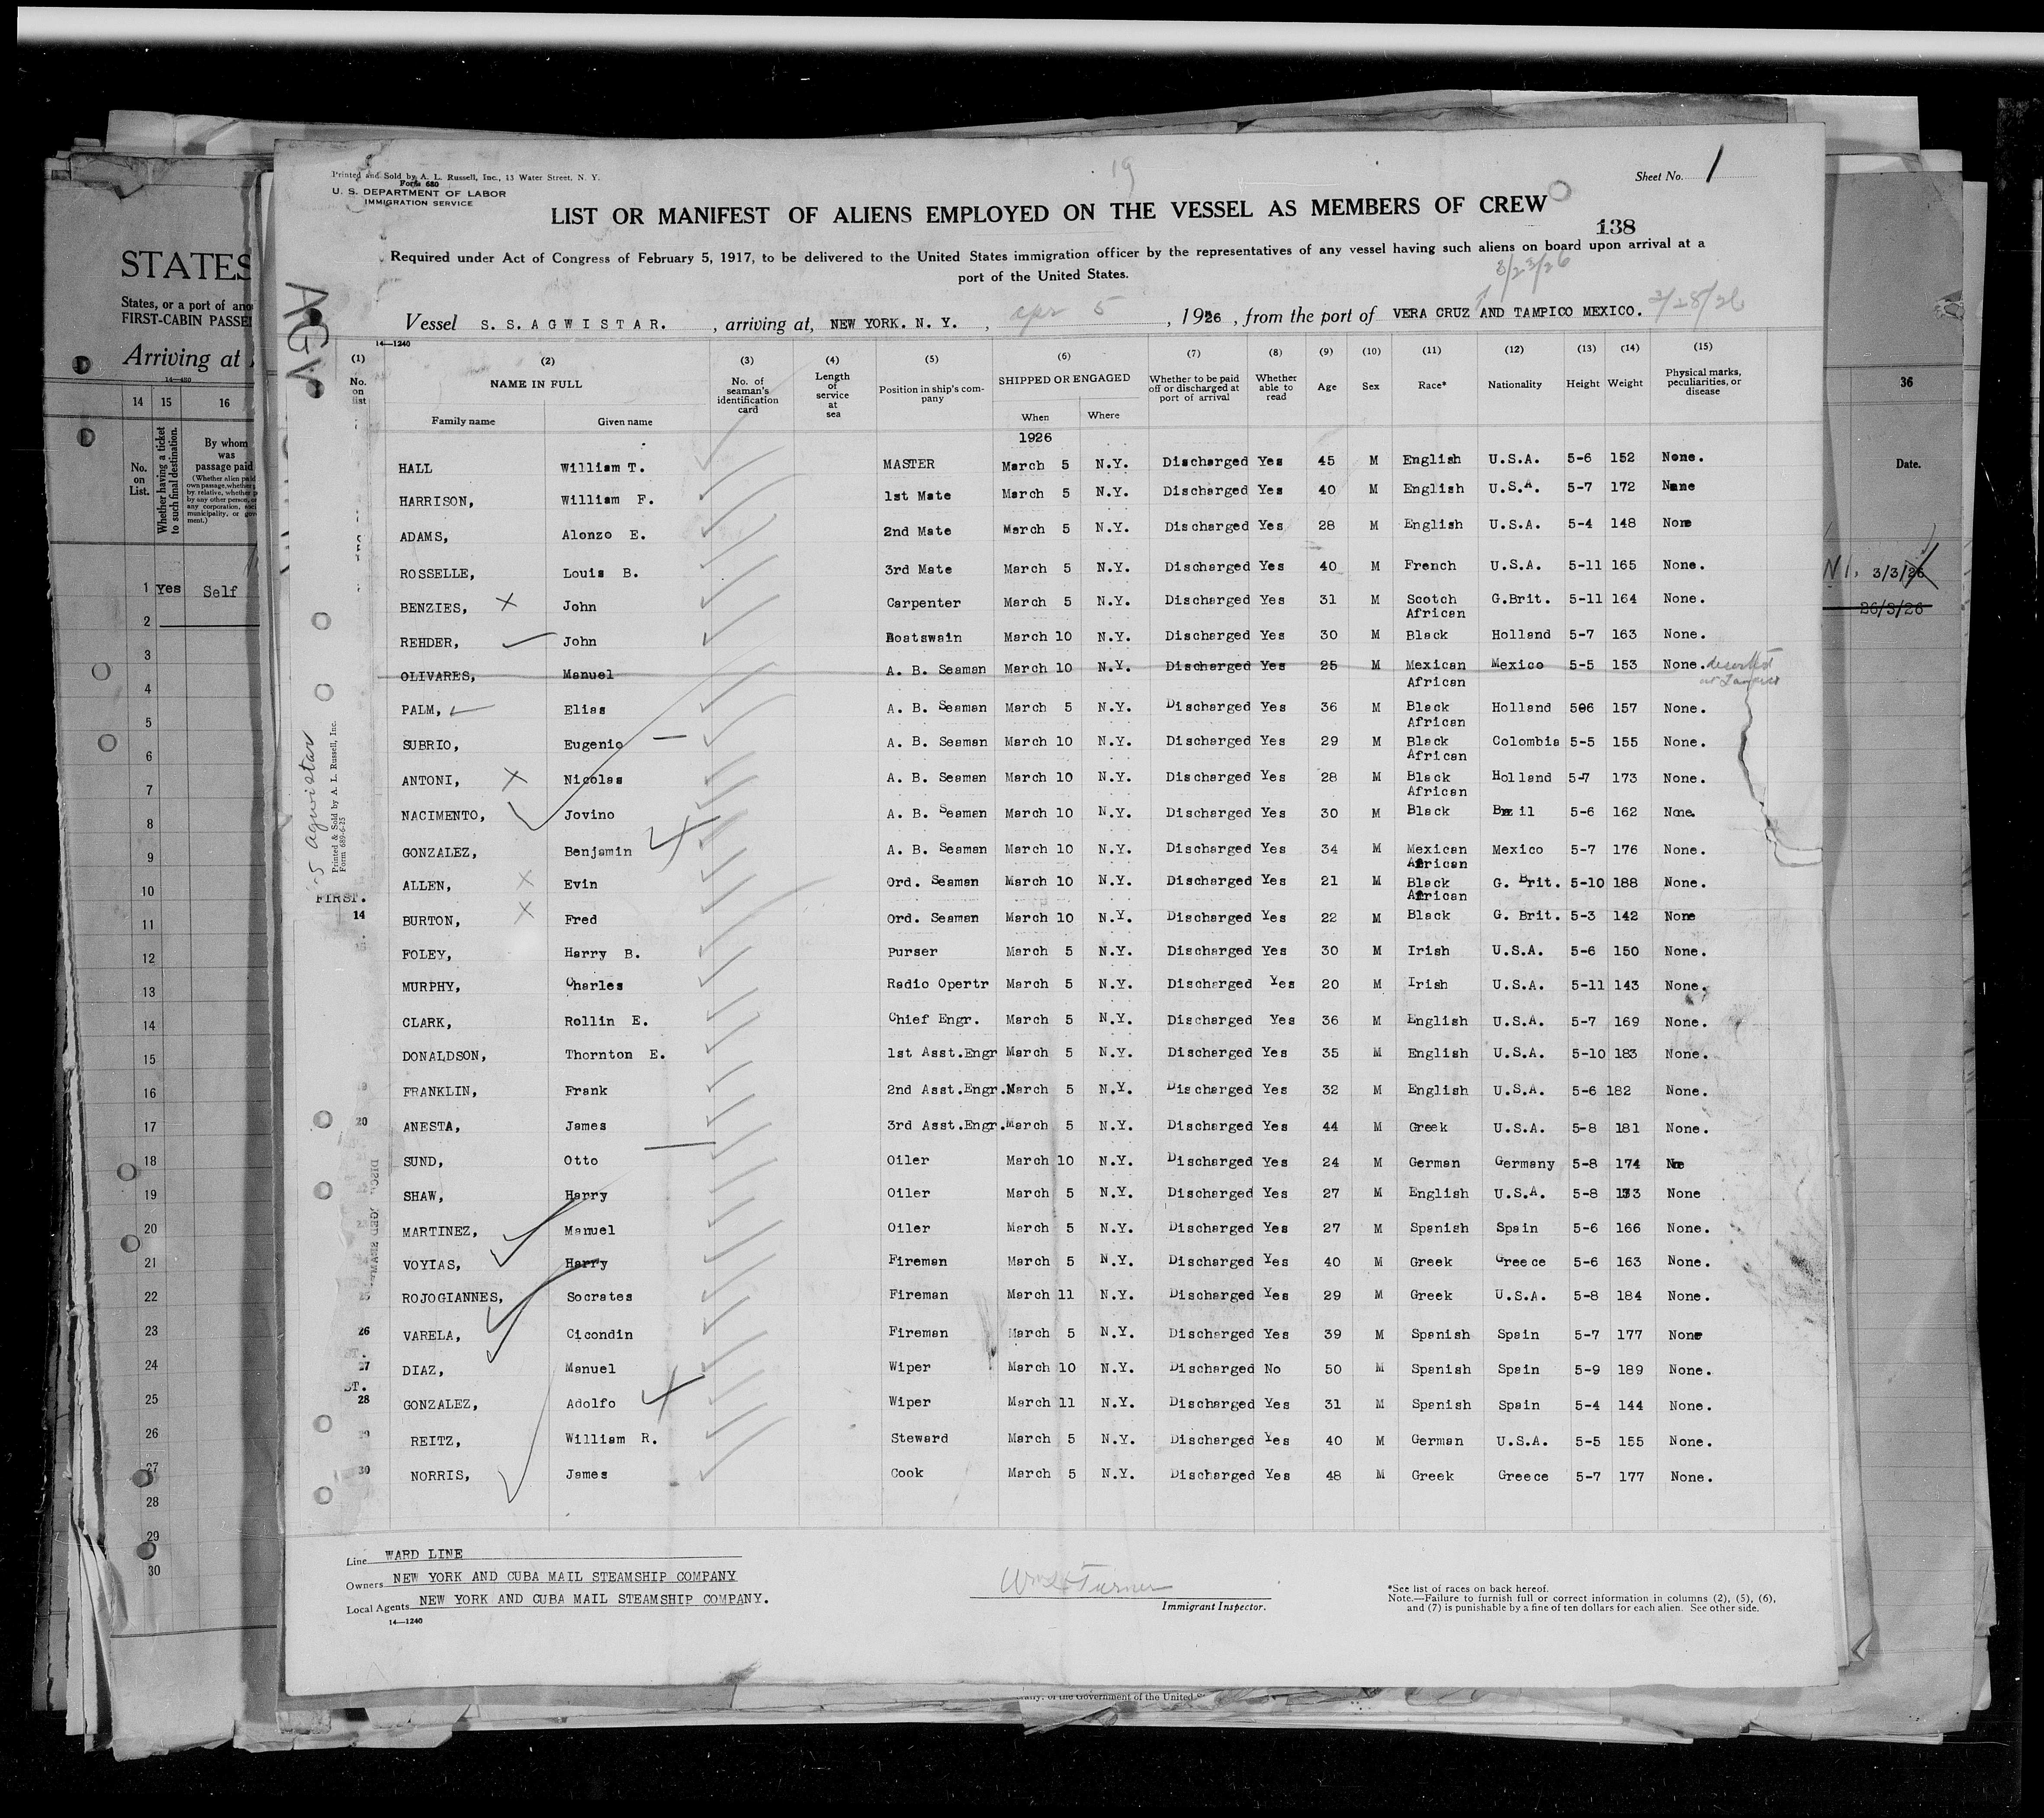 Printed and Sold by A. L. Russell, Inc., 13 Water Street, N. Y.
Form 680
U. S. DEPARTMENT OF LABOR
IMMIGRATION SERVICE
19
Sheet No. 1
LIST OR MANIFEST OF ALIENS EMPLOYED ON THE VESSEL AS MEMBERS OF CREW
138
Required under Act of Congress of February 5, 1917, to be delivered to the United States immigration officer by the representatives of any vessel having such aliens on board upon arrival at a
port of the United States.
3/23/26
Vessel S. S. AGWISTAR. , arriving at, NEW YORK. N. Y. , apr 5 , 1926 , from the port of VERA CRUZ AND TAMPICO MEXICO. 3/28/26
14—1240
(1) (2) (3) (4) (5) (6) (7) (8) (9) (10) (11) (12) (13) (14) (15)
No. on list NAME IN FULL No. of seaman's identification card Length of service at sea Position in ship's company SHIPPED OR ENGAGED Whether to be paid off or discharged at port of arrival Whether able to read Age Sex Race* Nationality Height Weight Physical marks, peculiarities, or disease
Family name Given name When Where
1926
HALL William T. MASTER March 5 N.Y. Discharged Yes 45 M English U.S.A. 5-6 152 None.
HARRISON, William F. 1st Mate March 5 N.Y. Discharged Yes 40 M English U.S.A. 5-7 172 None
ADAMS, Alonzo E. 2nd Mate March 5 N.Y. Discharged Yes 28 M English U.S.A. 5-4 148 None
ROSSELLE, Louis B. 3rd Mate March 5 N.Y. Discharged Yes 40 M French U.S.A. 5-11 165 None.
BENZIES, John Carpenter March 5 N.Y. Discharged Yes 31 M Scotch G.Brit. 5-11 164 None.
African
REHDER, John Boatswain March 10 N.Y. Discharged Yes 30 M Black Holland 5-7 163 None.
OLIVARES, Manuel A. B. Seaman March 10 N.Y. Discharged Yes 25 M Mexican Mexico 5-5 153 None. deserted
at Tampico
African
PALM, Elias A. B. Seaman March 5 N.Y. Discharged Yes 36 M Black Holland 506 157 None.
African
SUBRIO, Eugenio A. B. Seaman March 10 N.Y. Discharged Yes 29 M Black Colombia 5-5 155 None.
African
ANTONI, Nicolas A. B. Seaman March 10 N.Y. Discharged Yes 28 M Black Holland 5-7 173 None.
African
NACIMENTO, Jovino A. B. Seaman March 10 N.Y. Discharged Yes 30 M Black 5-6 162 None.
GONZALEZ, Benjamin A. B. Seaman March 10 N.Y. Discharged Yes 34 M Mexican Mexico 5-7 176 None.
African
ALLEN, Evin Ord. Seaman March 10 N.Y. Discharged Yes 21 M Black G. Brit. 5-10 188 None.
African
FIRST.
14 BURTON, Fred Ord. Seaman March 10 N.Y. Discharged Yes 22 M Black G. Brit. 5-3 142 None
FOLEY, Harry B. Purser March 5 N.Y. Discharged Yes 30 M Irish U.S.A. 5-6 150 None.
MURPHY, Charles Radio Opertr March 5 N.Y. Discharged Yes 20 M Irish U.S.A. 5-11 143 None.
CLARK, Rollin E. Chief Engr. March 5 N.Y. Discharged Yes 36 M English U.S.A. 5-7 169 None.
DONALDSON, Thornton E. 1st Asst.Engr March 5 N.Y. Discharged Yes 35 M English U.S.A. 5-10 183 None.
FRANKLIN, Frank 2nd Asst.Engr. March 5 N.Y. Discharged Yes 32 M English U.S.A. 5-6 182 None.
20 ANESTA, James 3rd Asst.Engr. March 5 N.Y. Discharged Yes 44 M Greek U.S.A. 5-8 181 None.
SUND, Otto Oiler March 10 N.Y. Discharged Yes 24 M German Germany 5-8 174
SHAW, Harry Oiler March 5 N.Y. Discharged Yes 27 M English U.S.A. 5-8 None
MARTINEZ, Manuel Oiler March 5 N.Y. Discharged Yes 27 M Spanish Spain 5-6 166 None.
VOYIAS, Harry Fireman March 5 N.Y. Discharged Yes 40 M Greek Greece 5-6 163 None.
25 ROJOGIANNES, Socrates Fireman March 11 N.Y. Discharged Yes 29 M Greek U.S.A. 5-8 184 None.
26 VARELA, Cicondin Fireman March 5 N.Y. Discharged Yes 39 M Spanish Spain 5-7 177 None
ST.
27 DIAZ, Manuel Wiper March 10 N.Y. Discharged No 50 M Spanish Spain 5-9 189 None.
ST.
28 GONZALEZ, Adolfo Wiper March 11 N.Y. Discharged Yes 31 M Spanish Spain 5-4 144 None.
29 REITZ, William R. Steward March 5 N.Y. Discharged Yes 40 M German U.S.A. 5-5 155 None.
30 NORRIS, James Cook March 5 N.Y. Discharged Yes 48 M Greek Greece 5-7 177 None.
Line WARD LINE
Owners NEW YORK AND CUBA MAIL STEAMSHIP COMPANY
Local Agents NEW YORK AND CUBA MAIL STEAMSHIP COMPANY.
14—1240
Turner
Immigrant Inspector.
*See list of races on back hereof.
Note.—Failure to furnish full or correct information in columns (2), (5), (6),
and (7) is punishable by a fine of ten dollars for each alien. See other side.
AGW
Agwistar
Printed & Sold by A. L. Russell, Inc.
Form 689-6-25
STATES
States, or a port of
FIRST-CABIN
Arriving at
14—480
14 15 16
No. on List.
Whether having a ticket to such final destination.
By whom was passage paid
1 Yes Self
2
3
4
5
6
7
8
9
10
11
12
13
14
15
16
17
18
19
20
21
22
23
24
25
26
27
28
29
30
36
Date.
3/3/26
26/3/26
of the Government of the United